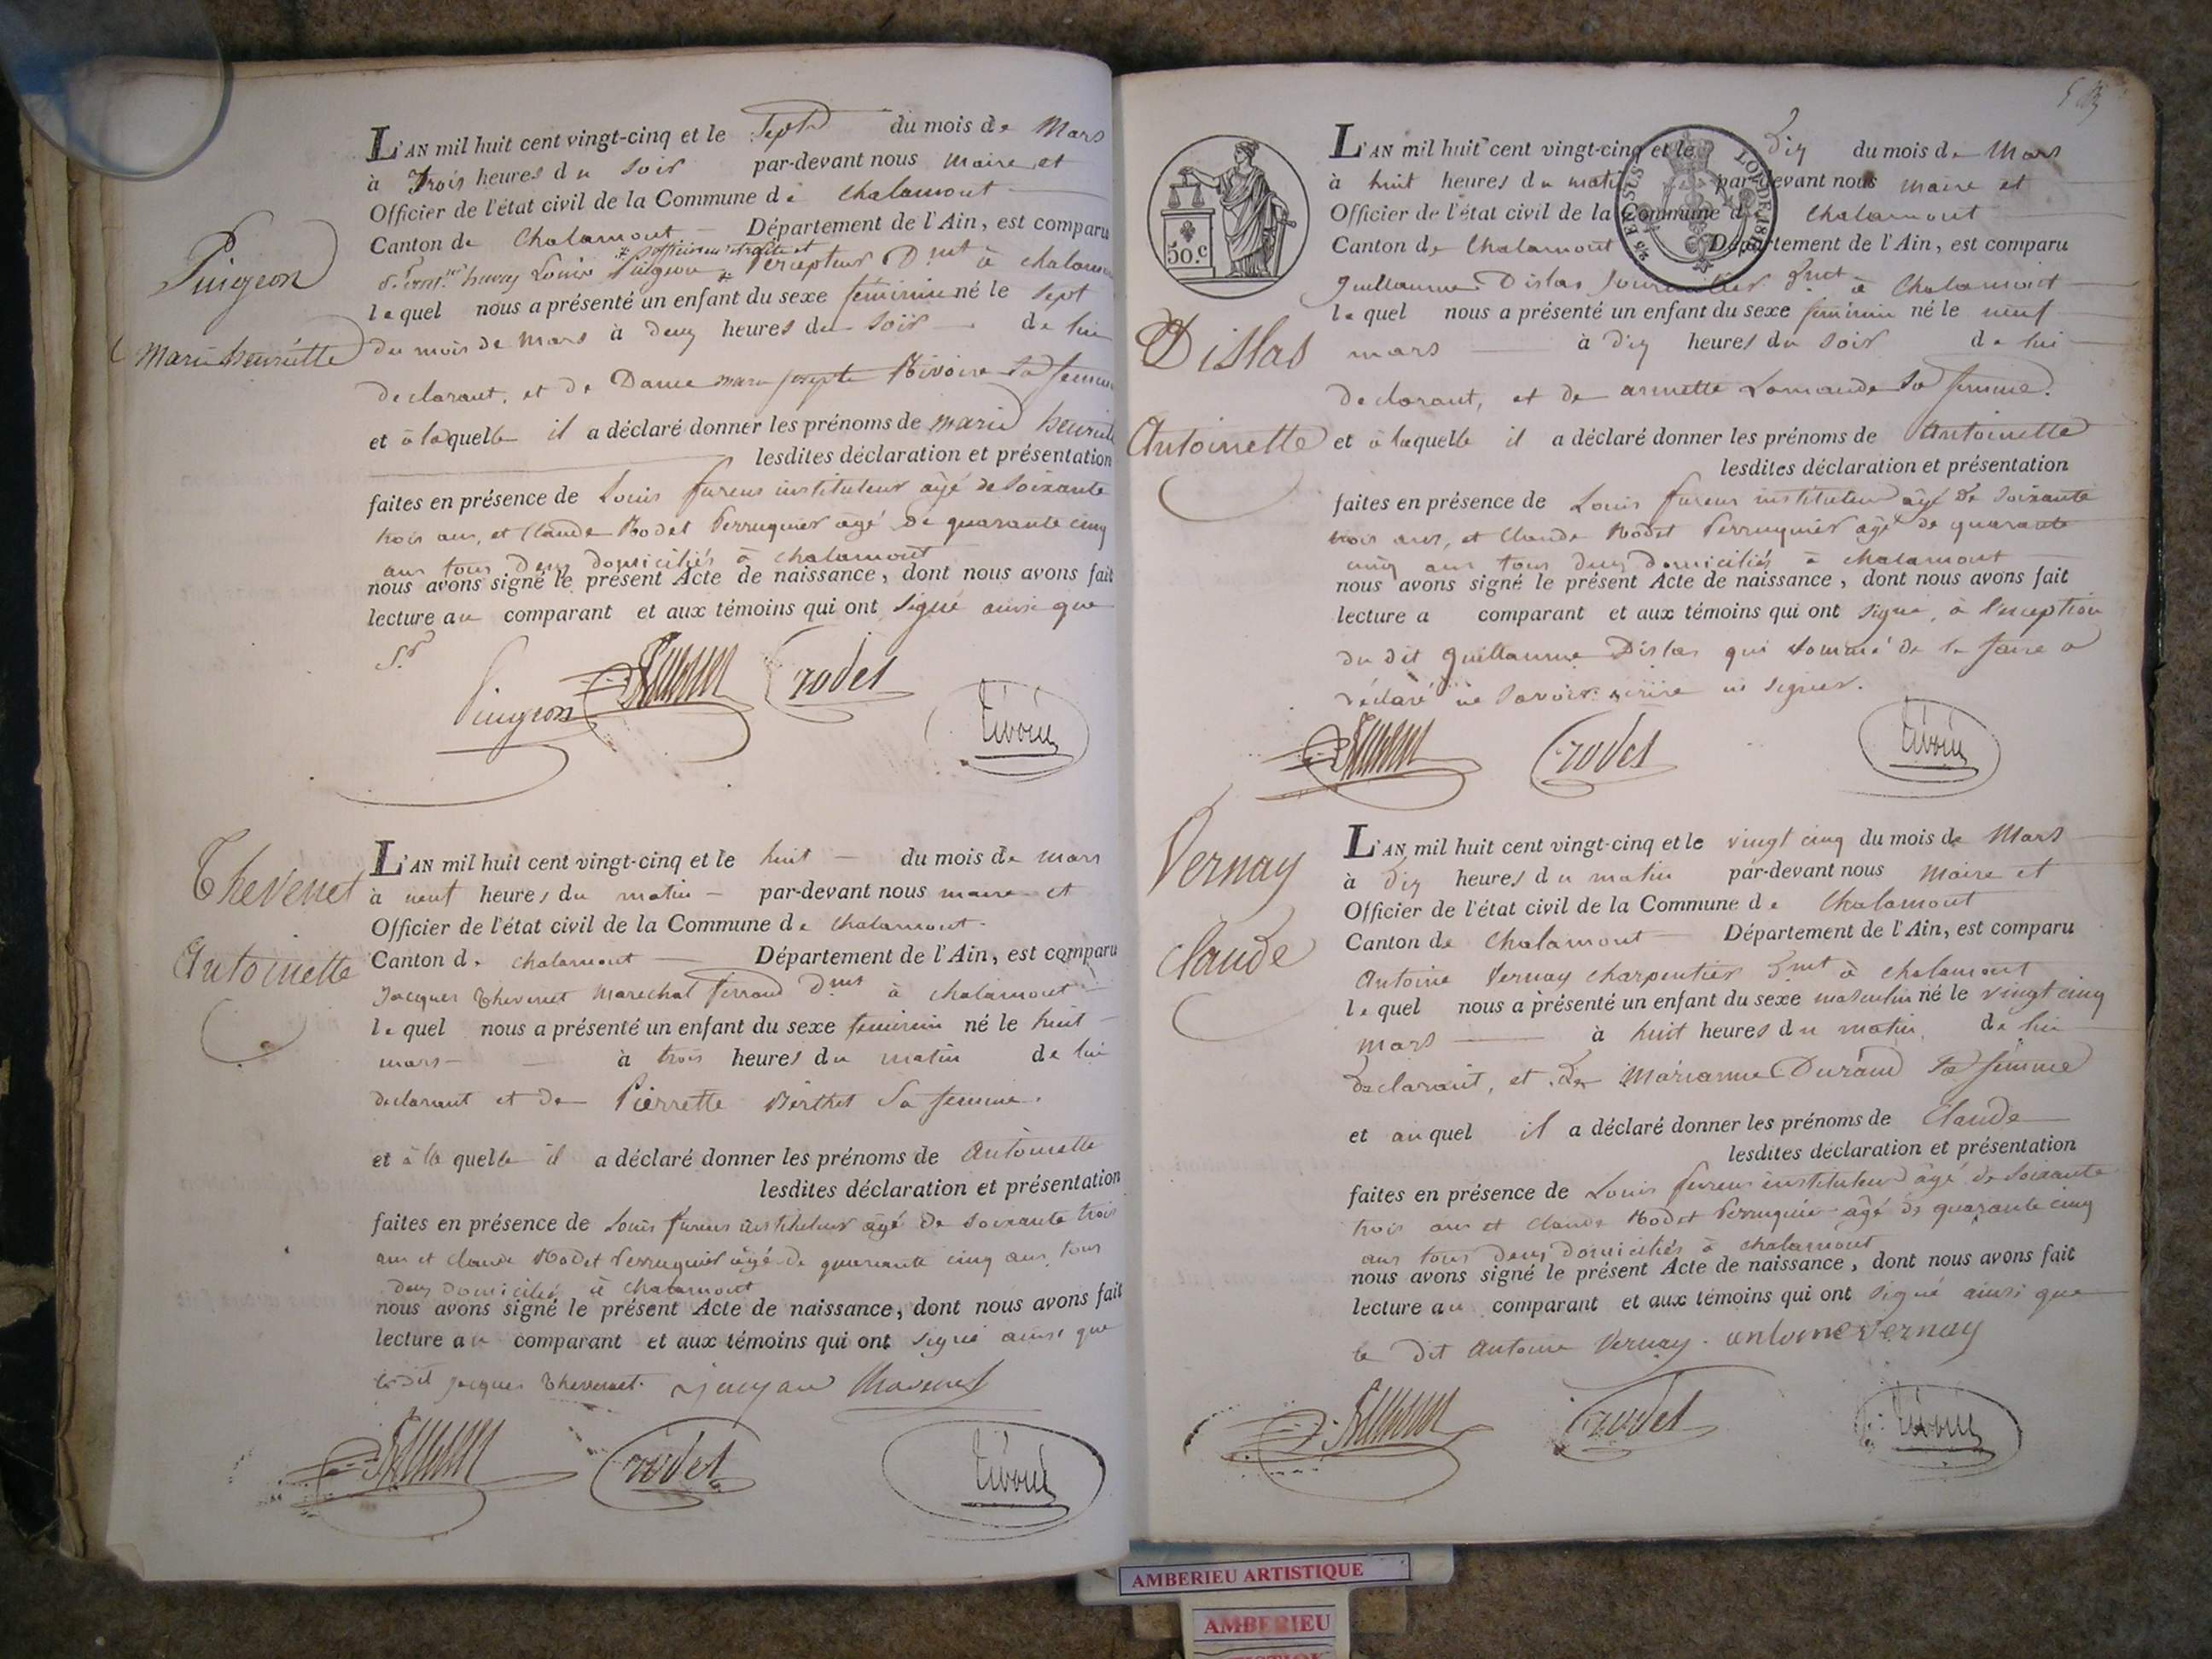 Pingeon
Marie henriette
L'AN mil huit cent vingt-cinq et le Sept du mois de Mars
à Trois heures du Soir par-devant nous maire et
Officier de l'état civil de la Commune de Chalamont
Canton de Chalamont Département de l'Ain, est comparu
henry Louis Pingeon Percepteur Dmt à chalamont
lequel nous a présenté un enfant du sexe féminin né le Sept
du mois de Mars à deux heures du Soir de lui
declarant, et de Dame marie Rivoire Sa femme
et à laquelle il a déclaré donner les prénoms de marie henriette
lesdites déclaration et présentation
faites en présence de Louis fureus instituteur âgé de Soixante
trois ans, et Claude Rodet Perruquier âgé de quarante cinq
ans tous deux domiciliés à chalamont
nous avons signé le présent Acte de naissance, dont nous avons fait
lecture au comparant et aux témoins qui ont signé ainsi que
Sr
Pingeon rodet
Thevenet
Antoinette
L'AN mil huit cent vingt-cinq et le huit du mois de mars
à neuf heures du matin par-devant nous maire et
Officier de l'état civil de la Commune de Chalamont
Canton de chalamont Département de l'Ain, est comparu
Jacques Thevenet Marechal ferrand Dmt à chalamont
lequel nous a présenté un enfant du sexe feminin né le huit
mars à trois heures du matin de lui
declarant et de Pierrette Berthet Sa femme.
et à la quelle il a déclaré donner les prénoms de Antoinette
lesdites déclaration et présentation
faites en présence de Louis fureus instituteur âgé de Soixante trois
ans et claude Rodet Perruquier âgé de quarante cinq ans tous
deux domiciliés à chalamont
nous avons signé le présent Acte de naissance, dont nous avons fait
lecture au comparant et aux témoins qui ont signé ainsi que
le dit jacques thevenet.
rodet
50.c
LOI DE 1816
Dislas
Antoinette
L'AN mil huit cent vingt-cinq et le Dix du mois de Mars
à huit heures du matin par-devant nous maire et
Officier de l'état civil de la Commune de Chalamont
Canton de Chalamont Département de l'Ain, est comparu
guillaume Dislas Journalier Dmt à Chalamont
lequel nous a présenté un enfant du sexe féminin né le neuf
mars à dix heures du Soir de lui
declarant, et de annette Lamande Sa femme.
et à laquelle il a déclaré donner les prénoms de Antoinette
lesdites déclaration et présentation
faites en présence de Louis fureus instituteur âgé de Soixante
trois ans, et Claude Rodet Perruquier âgé de quarante
cinq ans tous deux domiciliés à chalamont
nous avons signé le présent Acte de naissance, dont nous avons fait
lecture a comparant et aux témoins qui ont signé, à l'exception
du dit guillaume Dislas qui Sommé de le faire a
déclaré ne Savoir écrire ni signer.
rodet
Vernay
Claude
L'AN mil huit cent vingt-cinq et le vingt cinq du mois de Mars
à Dix heures du matin par-devant nous Maire et
Officier de l'état civil de la Commune de Chalamont
Canton de Chalamont Département de l'Ain, est comparu
Antoine Vernay Charpentier Dmt à chalamont
lequel nous a présenté un enfant du sexe masculin né le vingt cinq
mars à huit heures du matin de lui
declarant, et de Marianne Durand Sa femme
et auquel il a déclaré donner les prénoms de Claude
lesdites déclaration et présentation
faites en présence de Louis fureus instituteur âgé de Soixante
trois ans et claude Rodet Perruquier âgé de quarante cinq
ans tous deux domiciliés à chalamont
nous avons signé le présent Acte de naissance, dont nous avons fait
lecture au comparant et aux témoins qui ont signé ainsi que
le dit Antoine Vernay. antoine vernay
rodet
AMBERIEU ARTISTIQUE
AMBERIEU